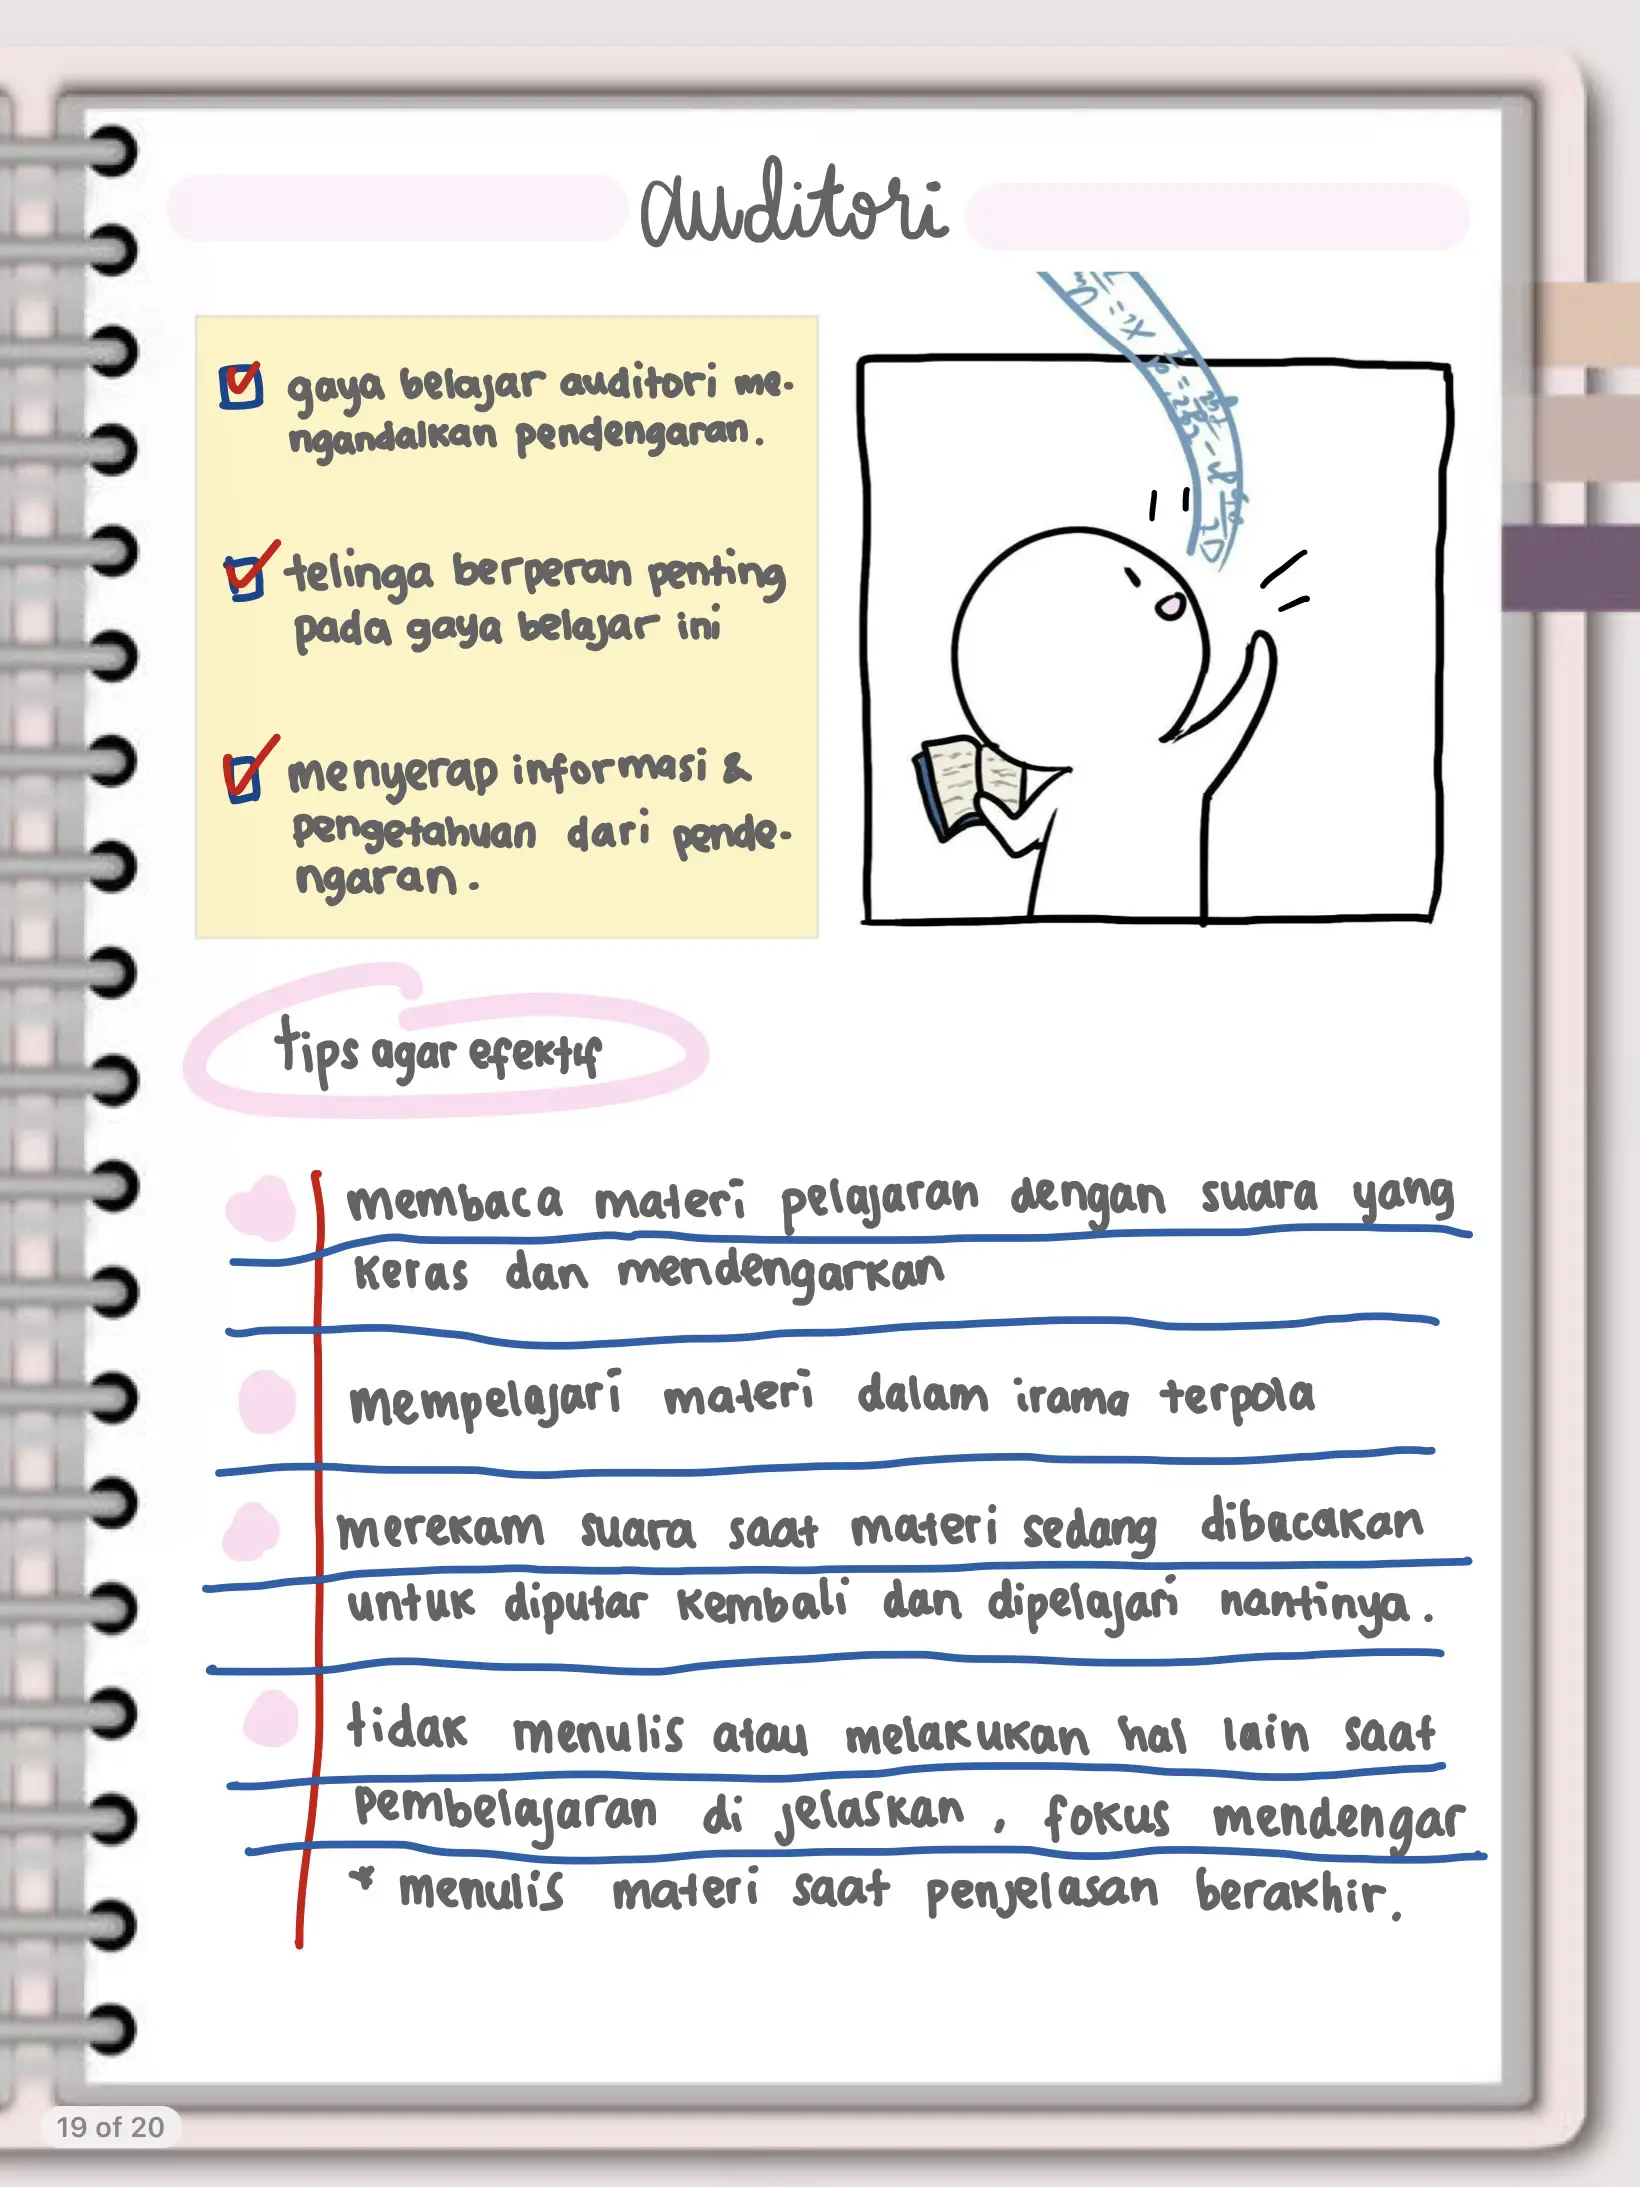 auditori
gaya belajar auditori me-
ngandalkan pendengaran.
telinga berperan penting
pada gaya belajar ini
menyerap informasi &
pengetahuan dari pende-
ngaran.
tips agar efektif
membaca materi pelajaran dengan suara yang
keras dan mendengarkan
mempelajari materi dalam irama terpola
merekam suara saat materi sedang dibacakan
untuk diputar kembali dan dipelajari nantinya.
tidak menulis atau melakukan hal lain saat
pembelajaran di jelaskan, fokus mendengar
* menulis materi saat penjelasan berakhir.
19 of 20